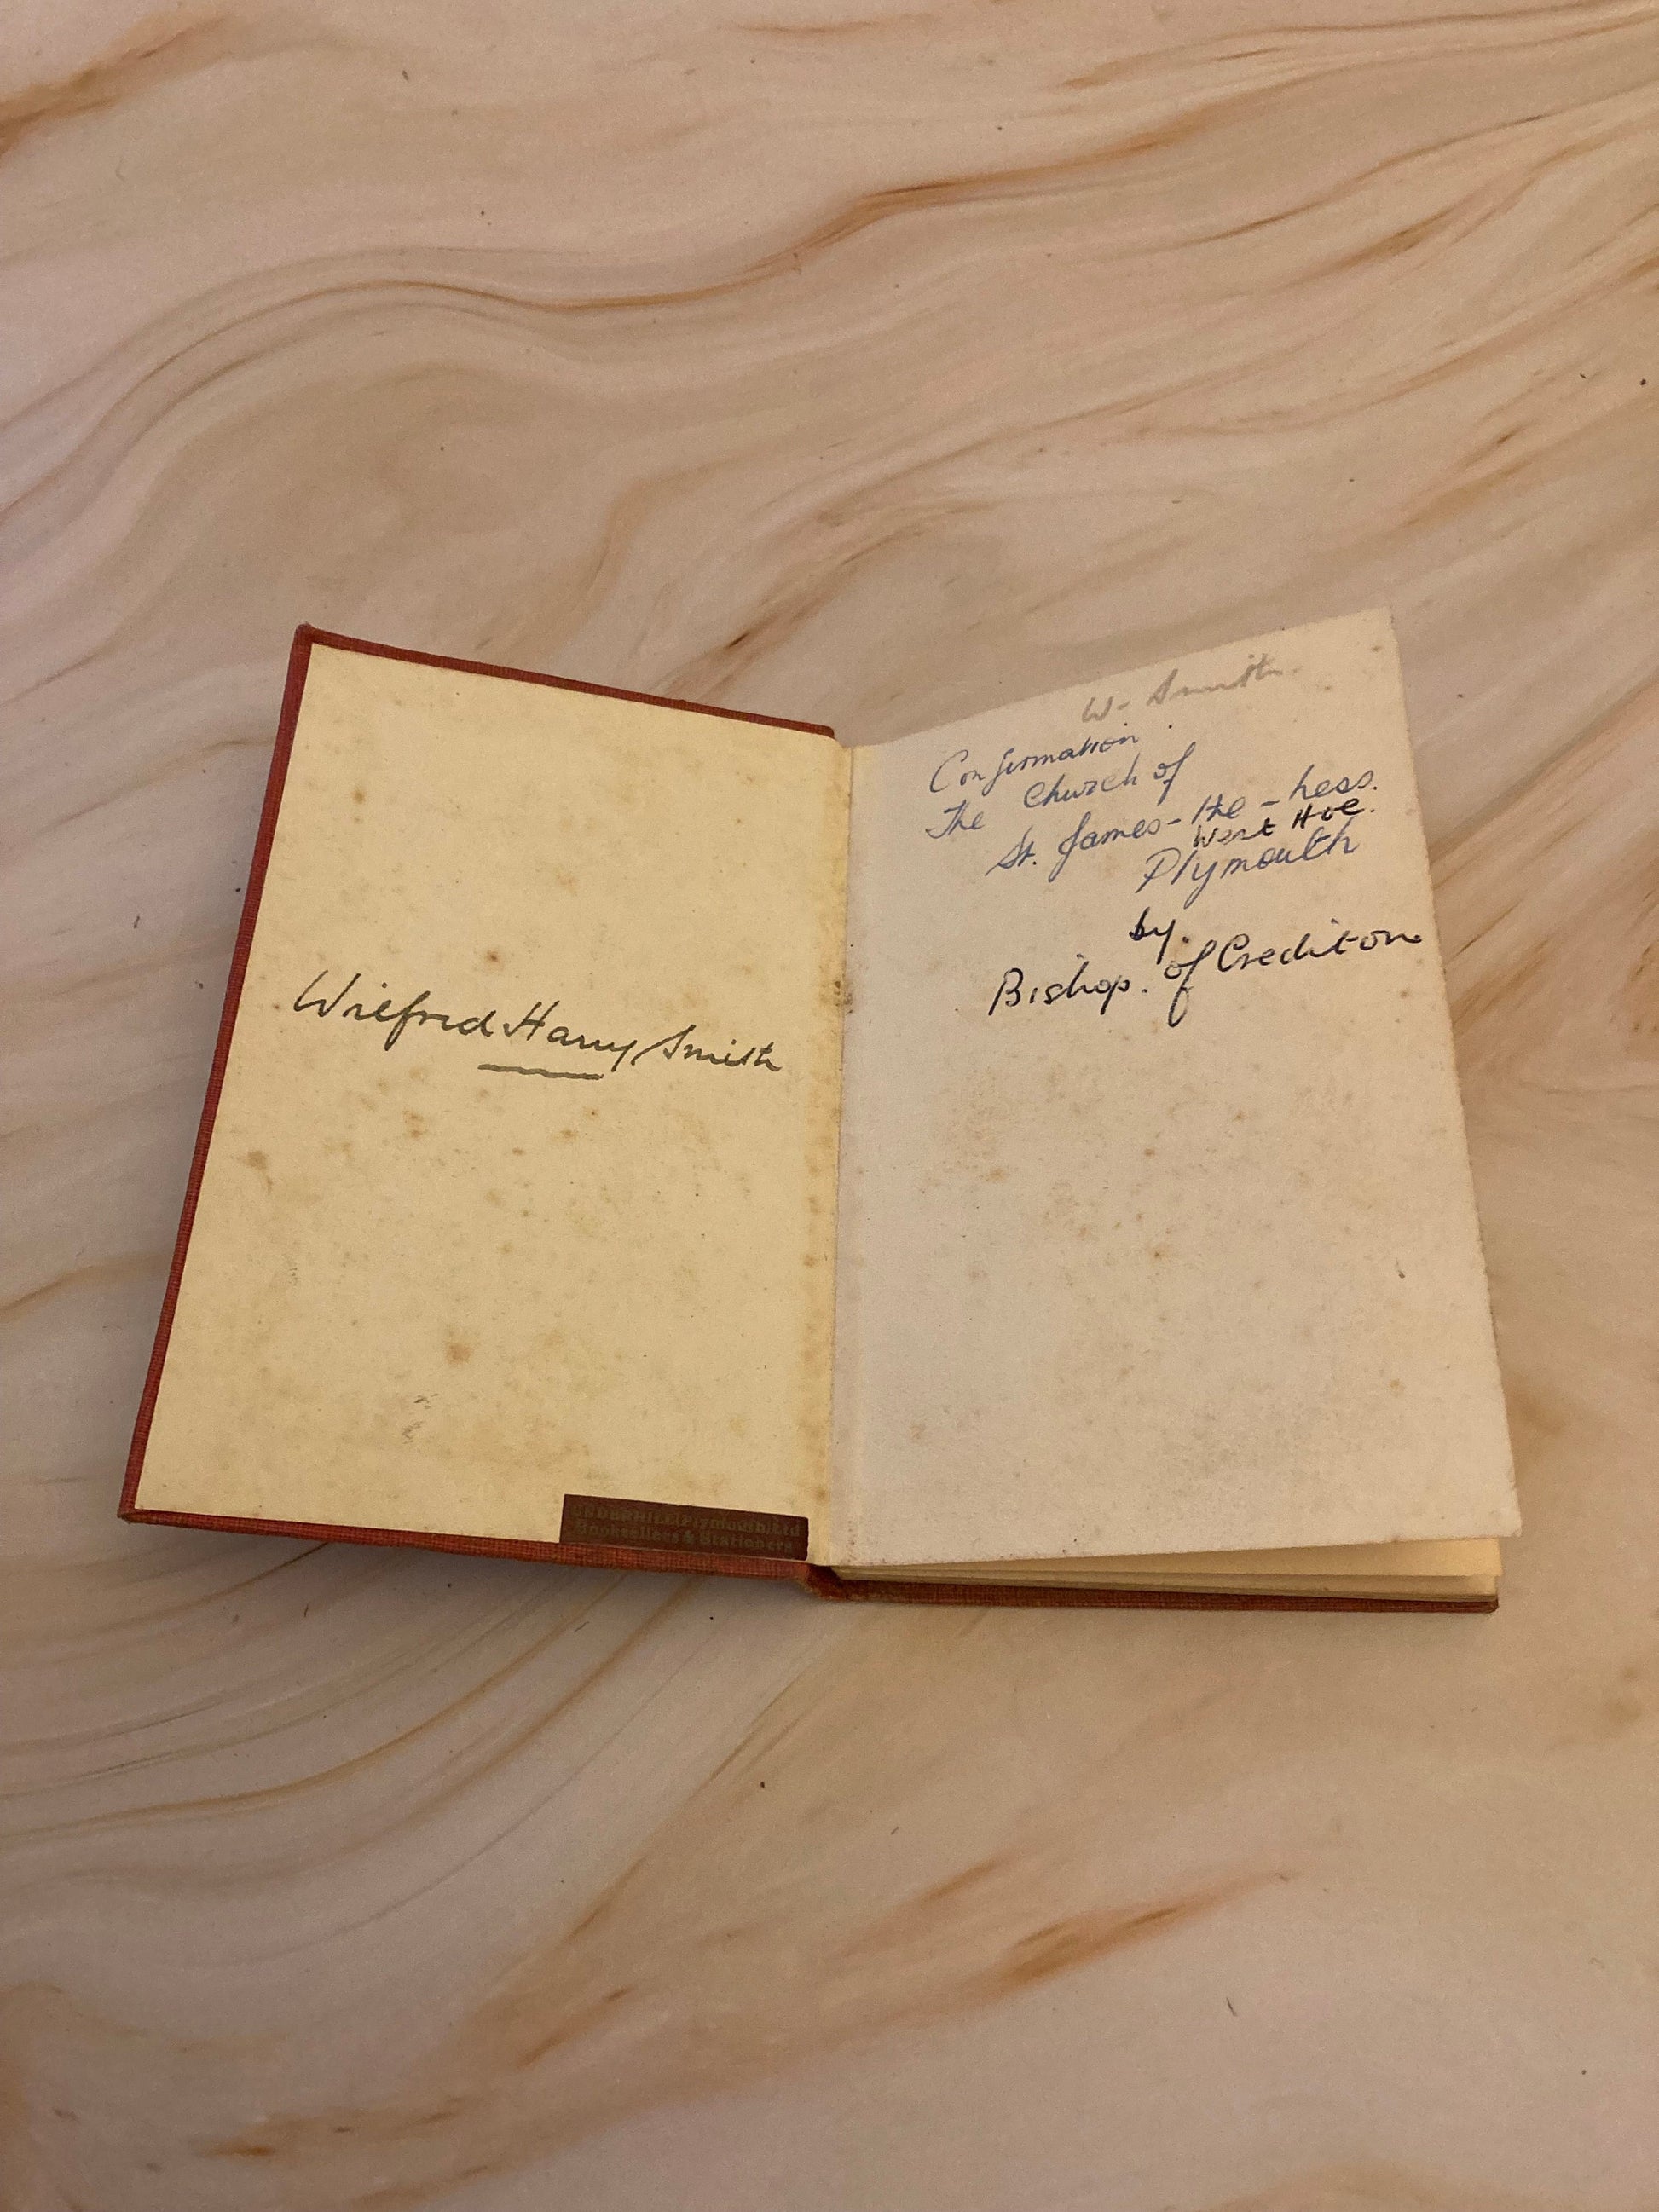 Wilfred Harry Smith
UNDERHILL (Plymouth) Ltd
Booksellers & Stationers
W. Smith.
Confirmation.
The Church of
St. James-the-Less.
West Hoe.
Plymouth
by.
Bishop. of Crediton